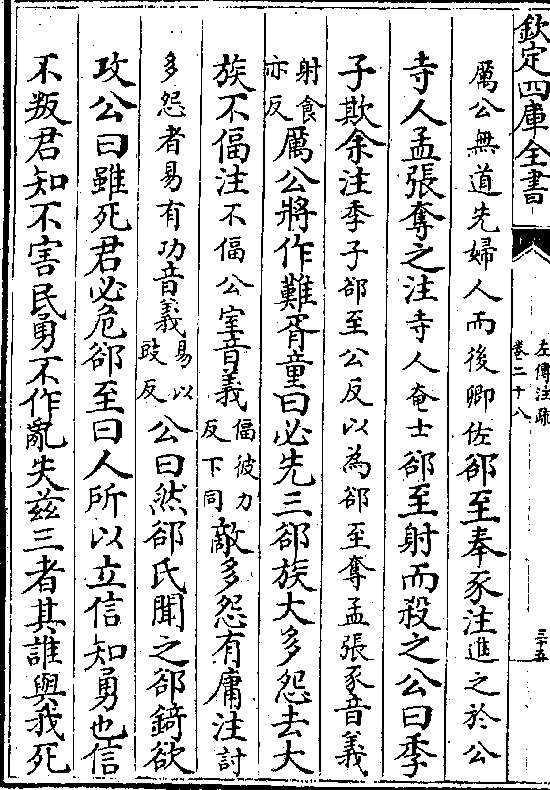 欽定四庫全書
左傳注疏
卷二十八
三十五
厲公無道先婦人而後卿佐郤至奉豕注進之於公
寺人孟張奪之注寺人奄士郤至射而殺之公曰季
子欺余注季子郤至公反以為郤至奪孟張豕音義
射食
亦反
厲公將作難胥童曰必先三郤族大多怨去大
族不偪注不偪公室音義
偪彼力
反下同
敵多怨有庸注討
多怨者易有功音義
易以
豉反
公曰然郤氏聞之郤錡欲
攻公曰雖死君必危郤至曰人所以立信知勇也信
不叛君知不害民勇不作亂失茲三者其誰與我死